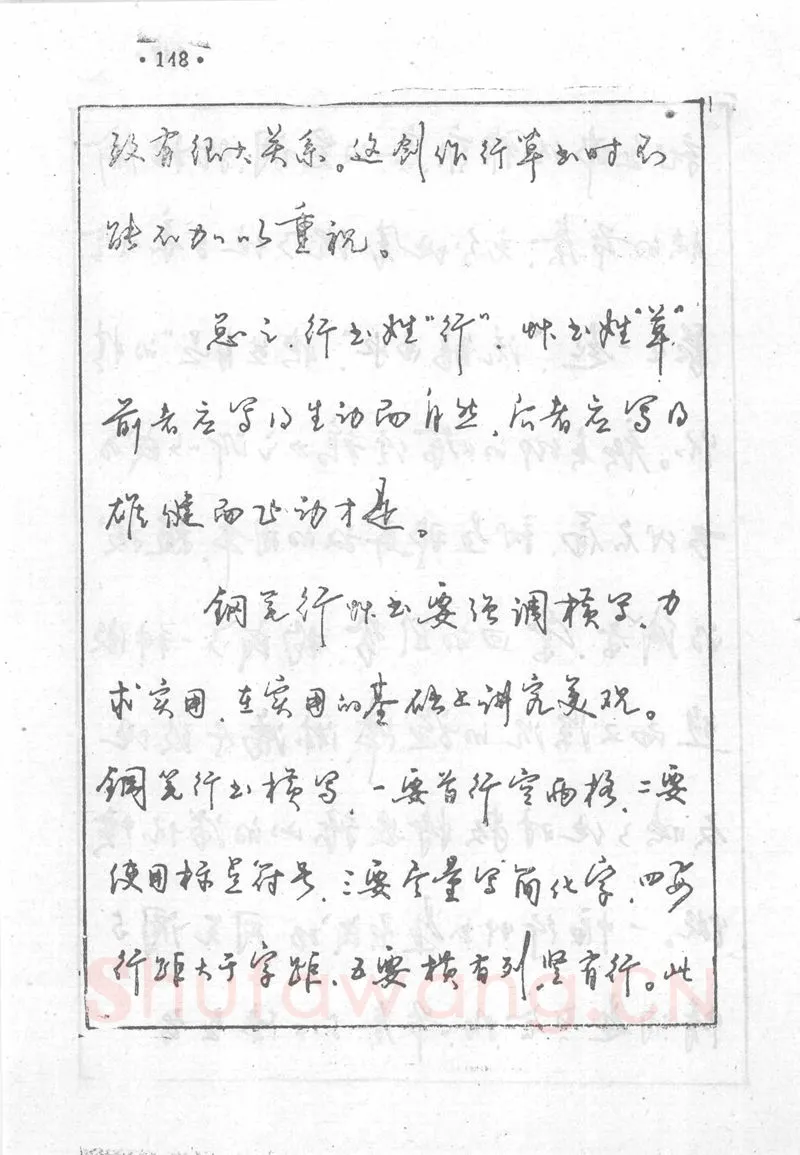 ·148·
致有很大关系。这创作行草书时不
能不加以重视。
总之,行书姓"行",草书姓"草"
前者应写得生动而自然,后者应写得
雄健而飞动才是。
钢笔行草书要强调横写,力
求实用,在实用的基础上讲究美观。
钢笔行书横写,一要首行空两格,二要
使用标点符号,三要尽量写简化字,四要
行距大于字距,五要横有列,竖有行。此
Shufawang.CN